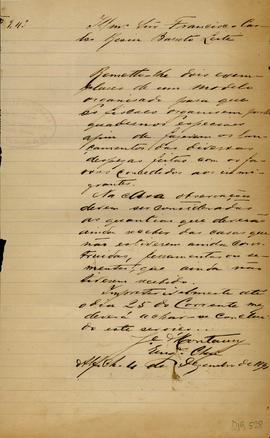 Illmo Snr Francisco Car
los Bueno Barreto Leite
Remetto-lhe dois exem
plares de um modelo
organisado para que
os fiscaes organisem
quadernos especiaes
afim de fazerem os lan
camentos das diversas
despezas feitas com os fa
vores concedidos ao immi
grantes.
Na casa observação
devem ser consideradas
as quantias que deverão
ainda receber das casas que
não estiverem ainda cons
truidas, ferramentas ou se
mentes, que ainda não
tiverem recebido.
Impreterivelmente até
o dia 25 do corrente me
deverá achar-se conclui
do este serviço.
de Montaury
Engo Che
4 de Dezembro de 189
Dig. 528